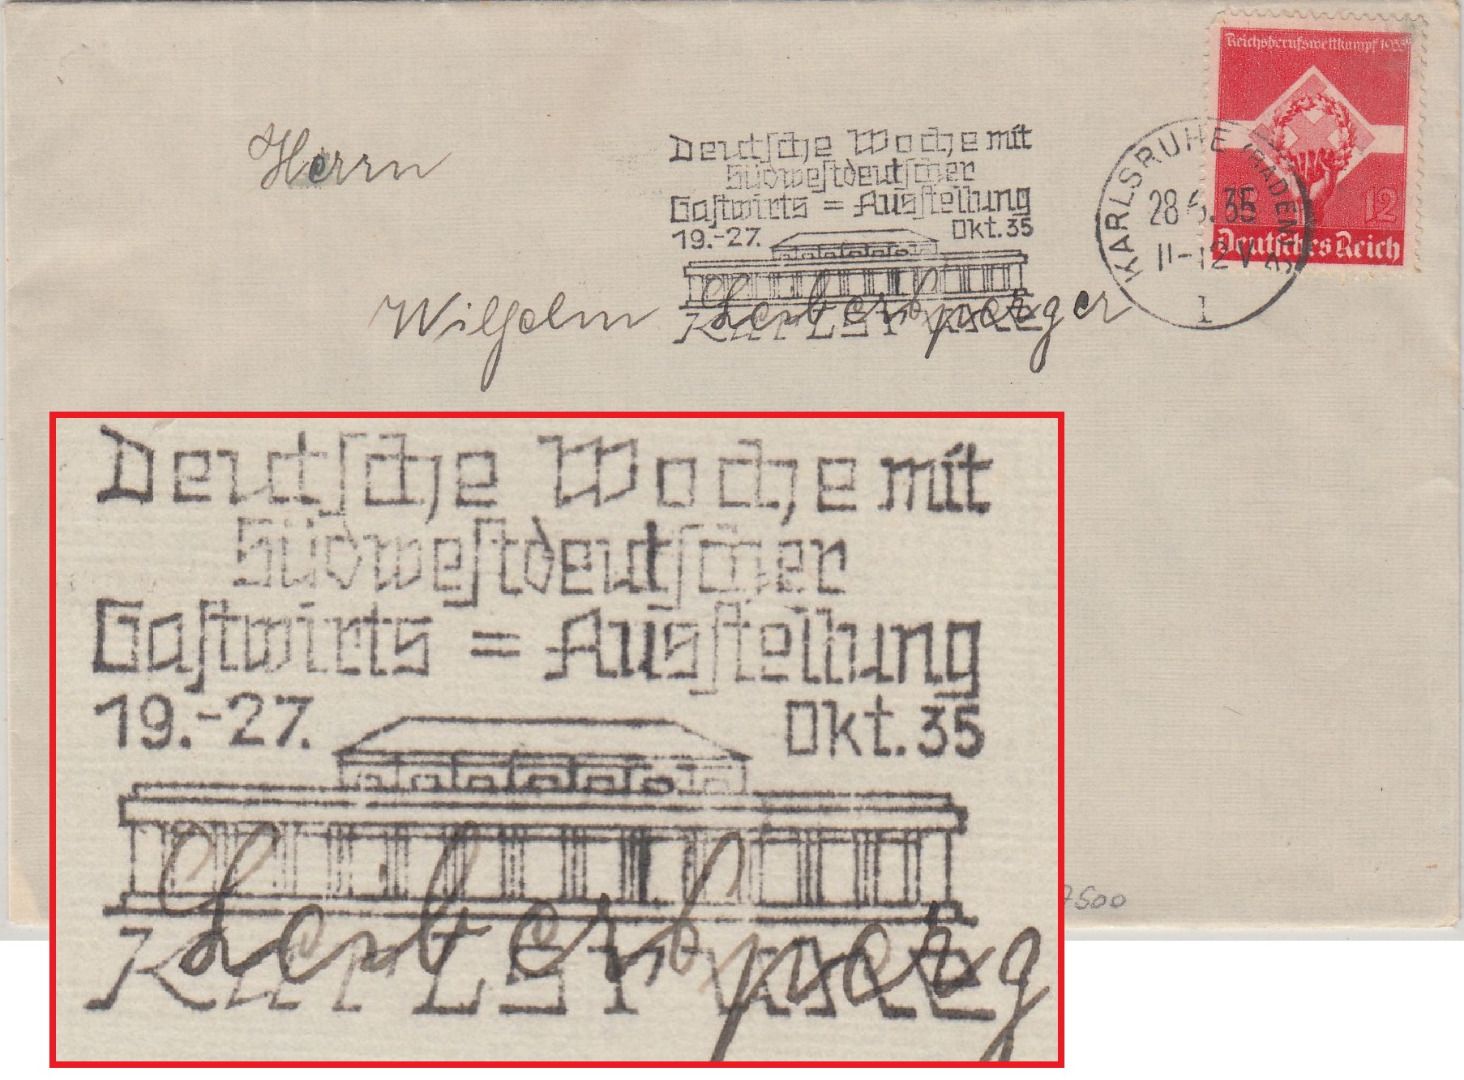 Reichsberufswettkampf 1935
12
Deutsches Reich
KARLSRUHE (BADEN)
28.6.35
11-12 V
1
Deutsche Woche mit
Südwestdeutscher
Gastwirts = Ausstellung
19.-27. Okt. 35
Karlsruhe
Herrn
Wilhelm
7500
Deutsche Woche mit
Südwestdeutscher
Gastwirts = Ausstellung
19.-27. Okt. 35
Karlsruhe